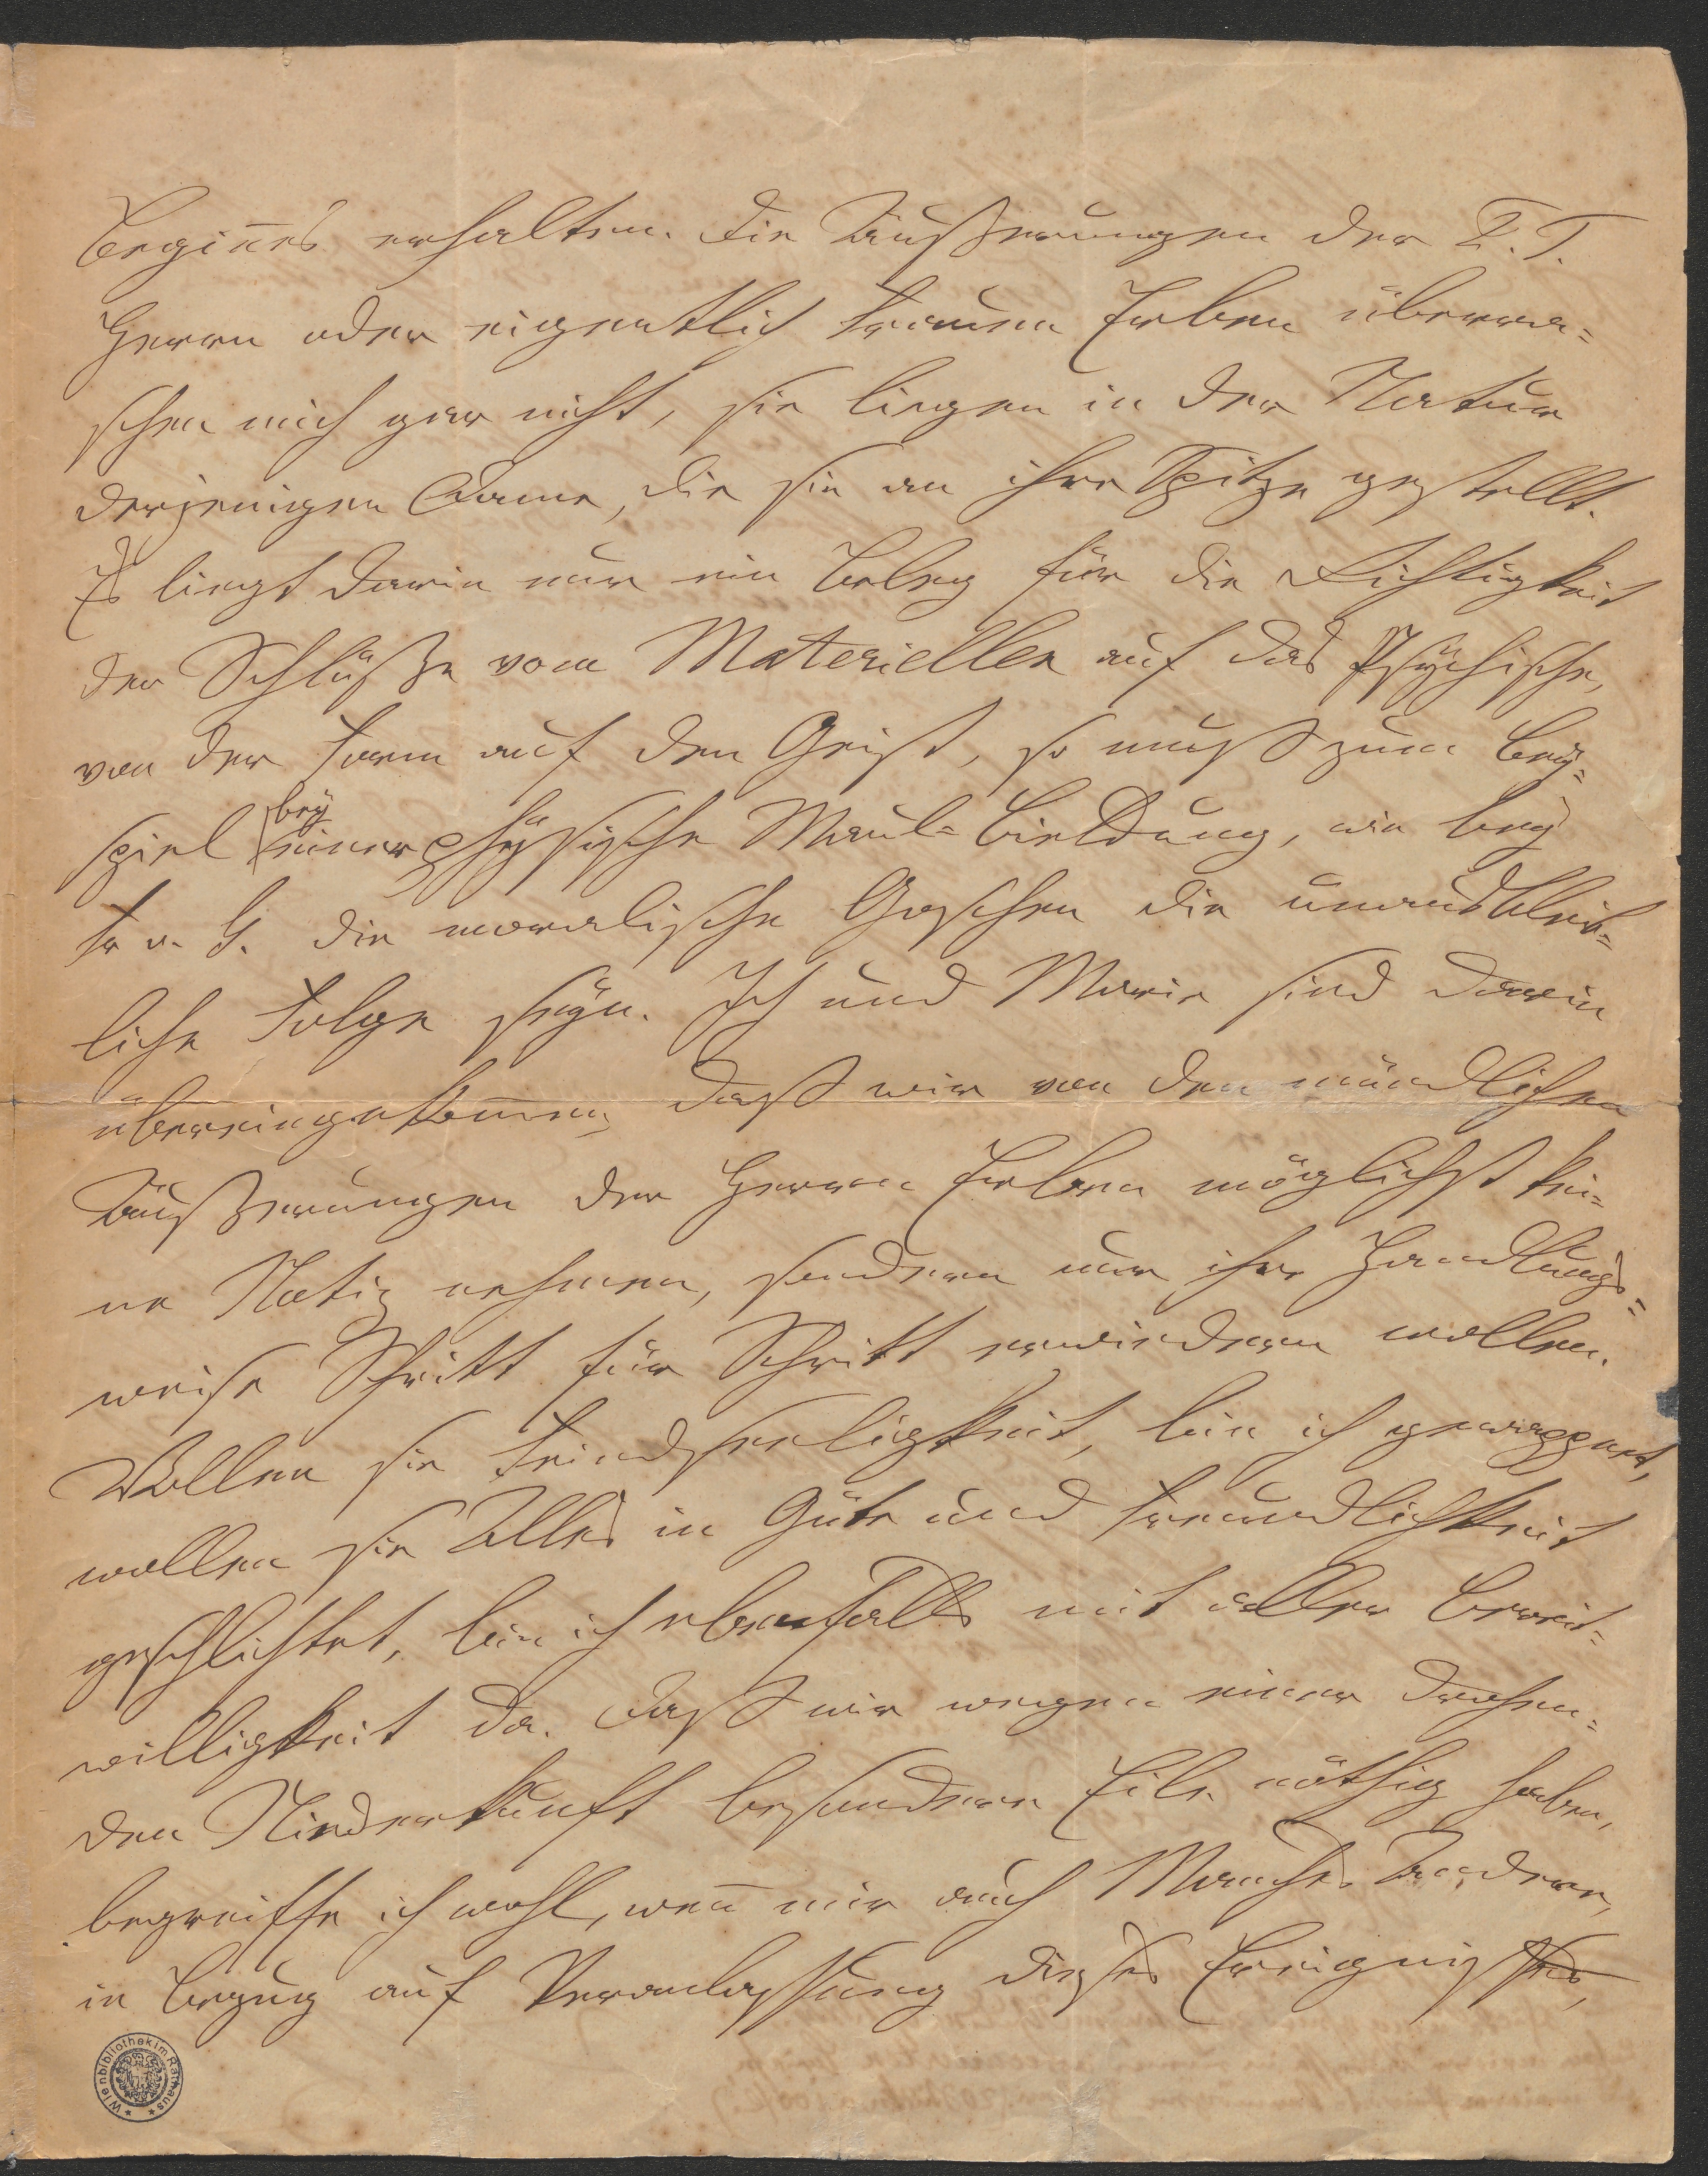 Begines erhalten. Die Äußerungen der P. T.
Herrn oder eigentlich Frauen Erben überra=
schen mich gar nicht, sie liegen in der Natur
derjenigen Dame, die sie an ihre Spitze gestellt.
Es liegt darin nur ein Beleg für die Richtigkeit
der Schlüße vom Materiellen auf das Psÿchische,
von der Form auf den Geist, so muß zum Beÿ=
spiel beÿ einer phÿsische Maul=Bildung, wie beÿ
Fr v. G. die moralische Goschen die unausbleib=
liche Folge seÿn. Ich und Marie sind darin
übereingekom̄en, daß wir von den mündlichen
Äußerungen der Herrn Erben möglichst kei=
ne Notiz nehmen, sondern nur ihre Handlungs=
weise Schritt für Schritt erwiedern wollen.
Wollen sie Feindseeligkeit, bin ich gewappnet,
wollen sie Alles in Güte und Freundlichkeit
geschlichtet, bin ich ebenfalls mit aller Bereit=
willigkeit da. Daß wir wegen einer drohen=
den Niederkunft besondere Eile nöthig haben,
begreiffe ich wohl, wen̄ mir auch Manches Andere,
in Bezug auf Veranlassung dieses Ereignisses,
Wienbibliothek im Rathaus